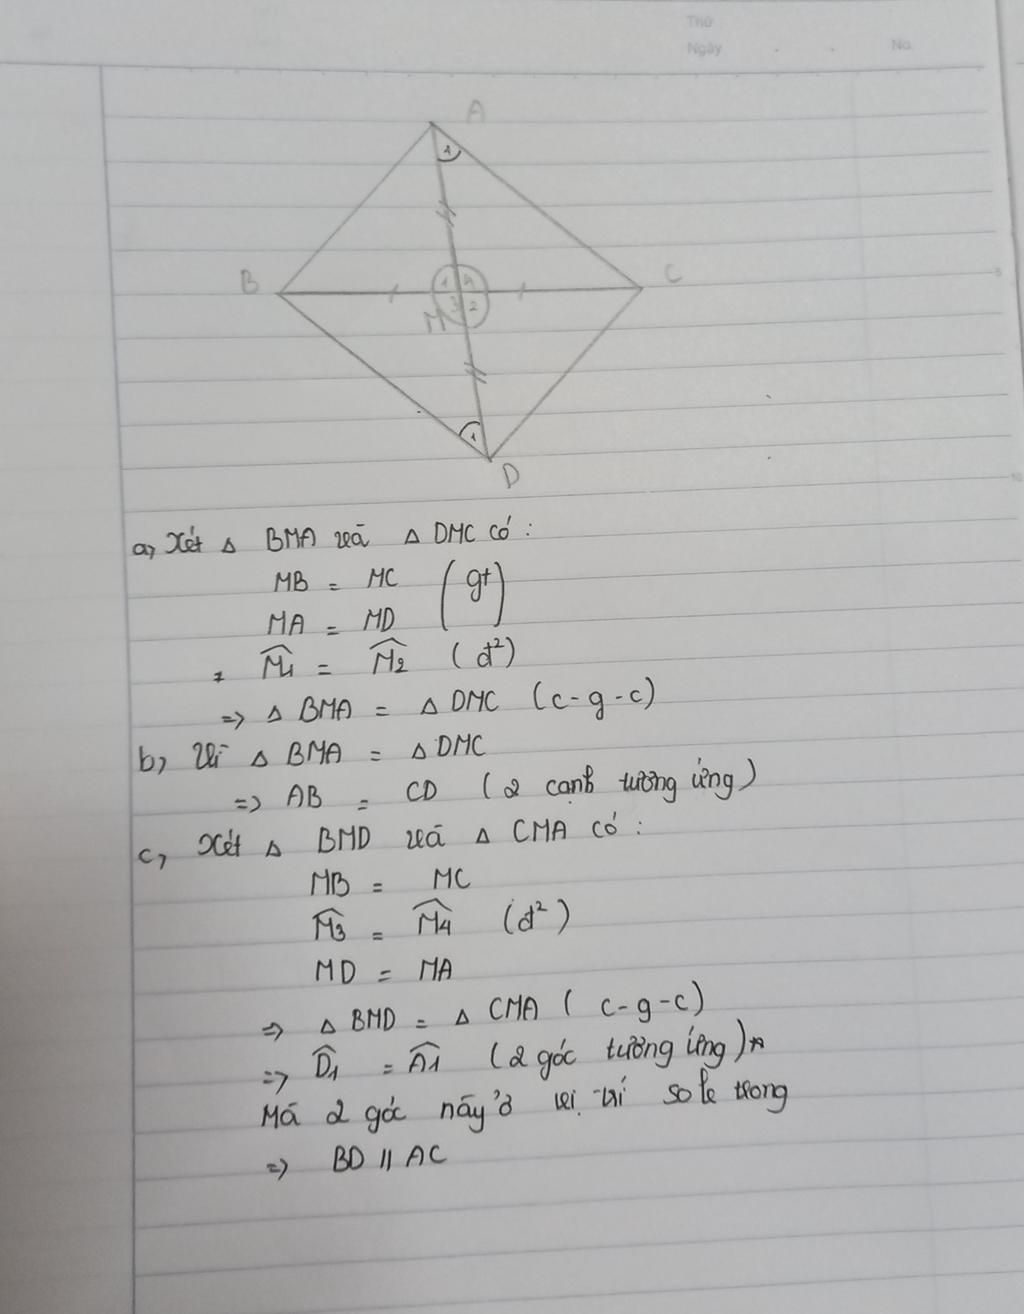 Thứ
Ngày . . No.
A
1
B
1 4
C
3 2
M
5
1
D
10
a, Xét Δ BMA và Δ DMC có :
MB = MC (gt)
MA = MD
+ M̂1 = M̂2 (đ²)
=> Δ BMA = Δ DMC (c-g-c)
b, Vì Δ BMA = Δ DMC
=> AB = CD (2 cạnh tương ứng)
c, Xét Δ BMD và Δ CMA có :
MB = MC
M̂3 = M̂4 (đ²)
MD = MA
=> Δ BMD = Δ CMA ( c-g-c)
=> D̂1 = Â1 (2 góc tương ứng)
Mà 2 góc này ở vị trí so le trong
=> BD // AC